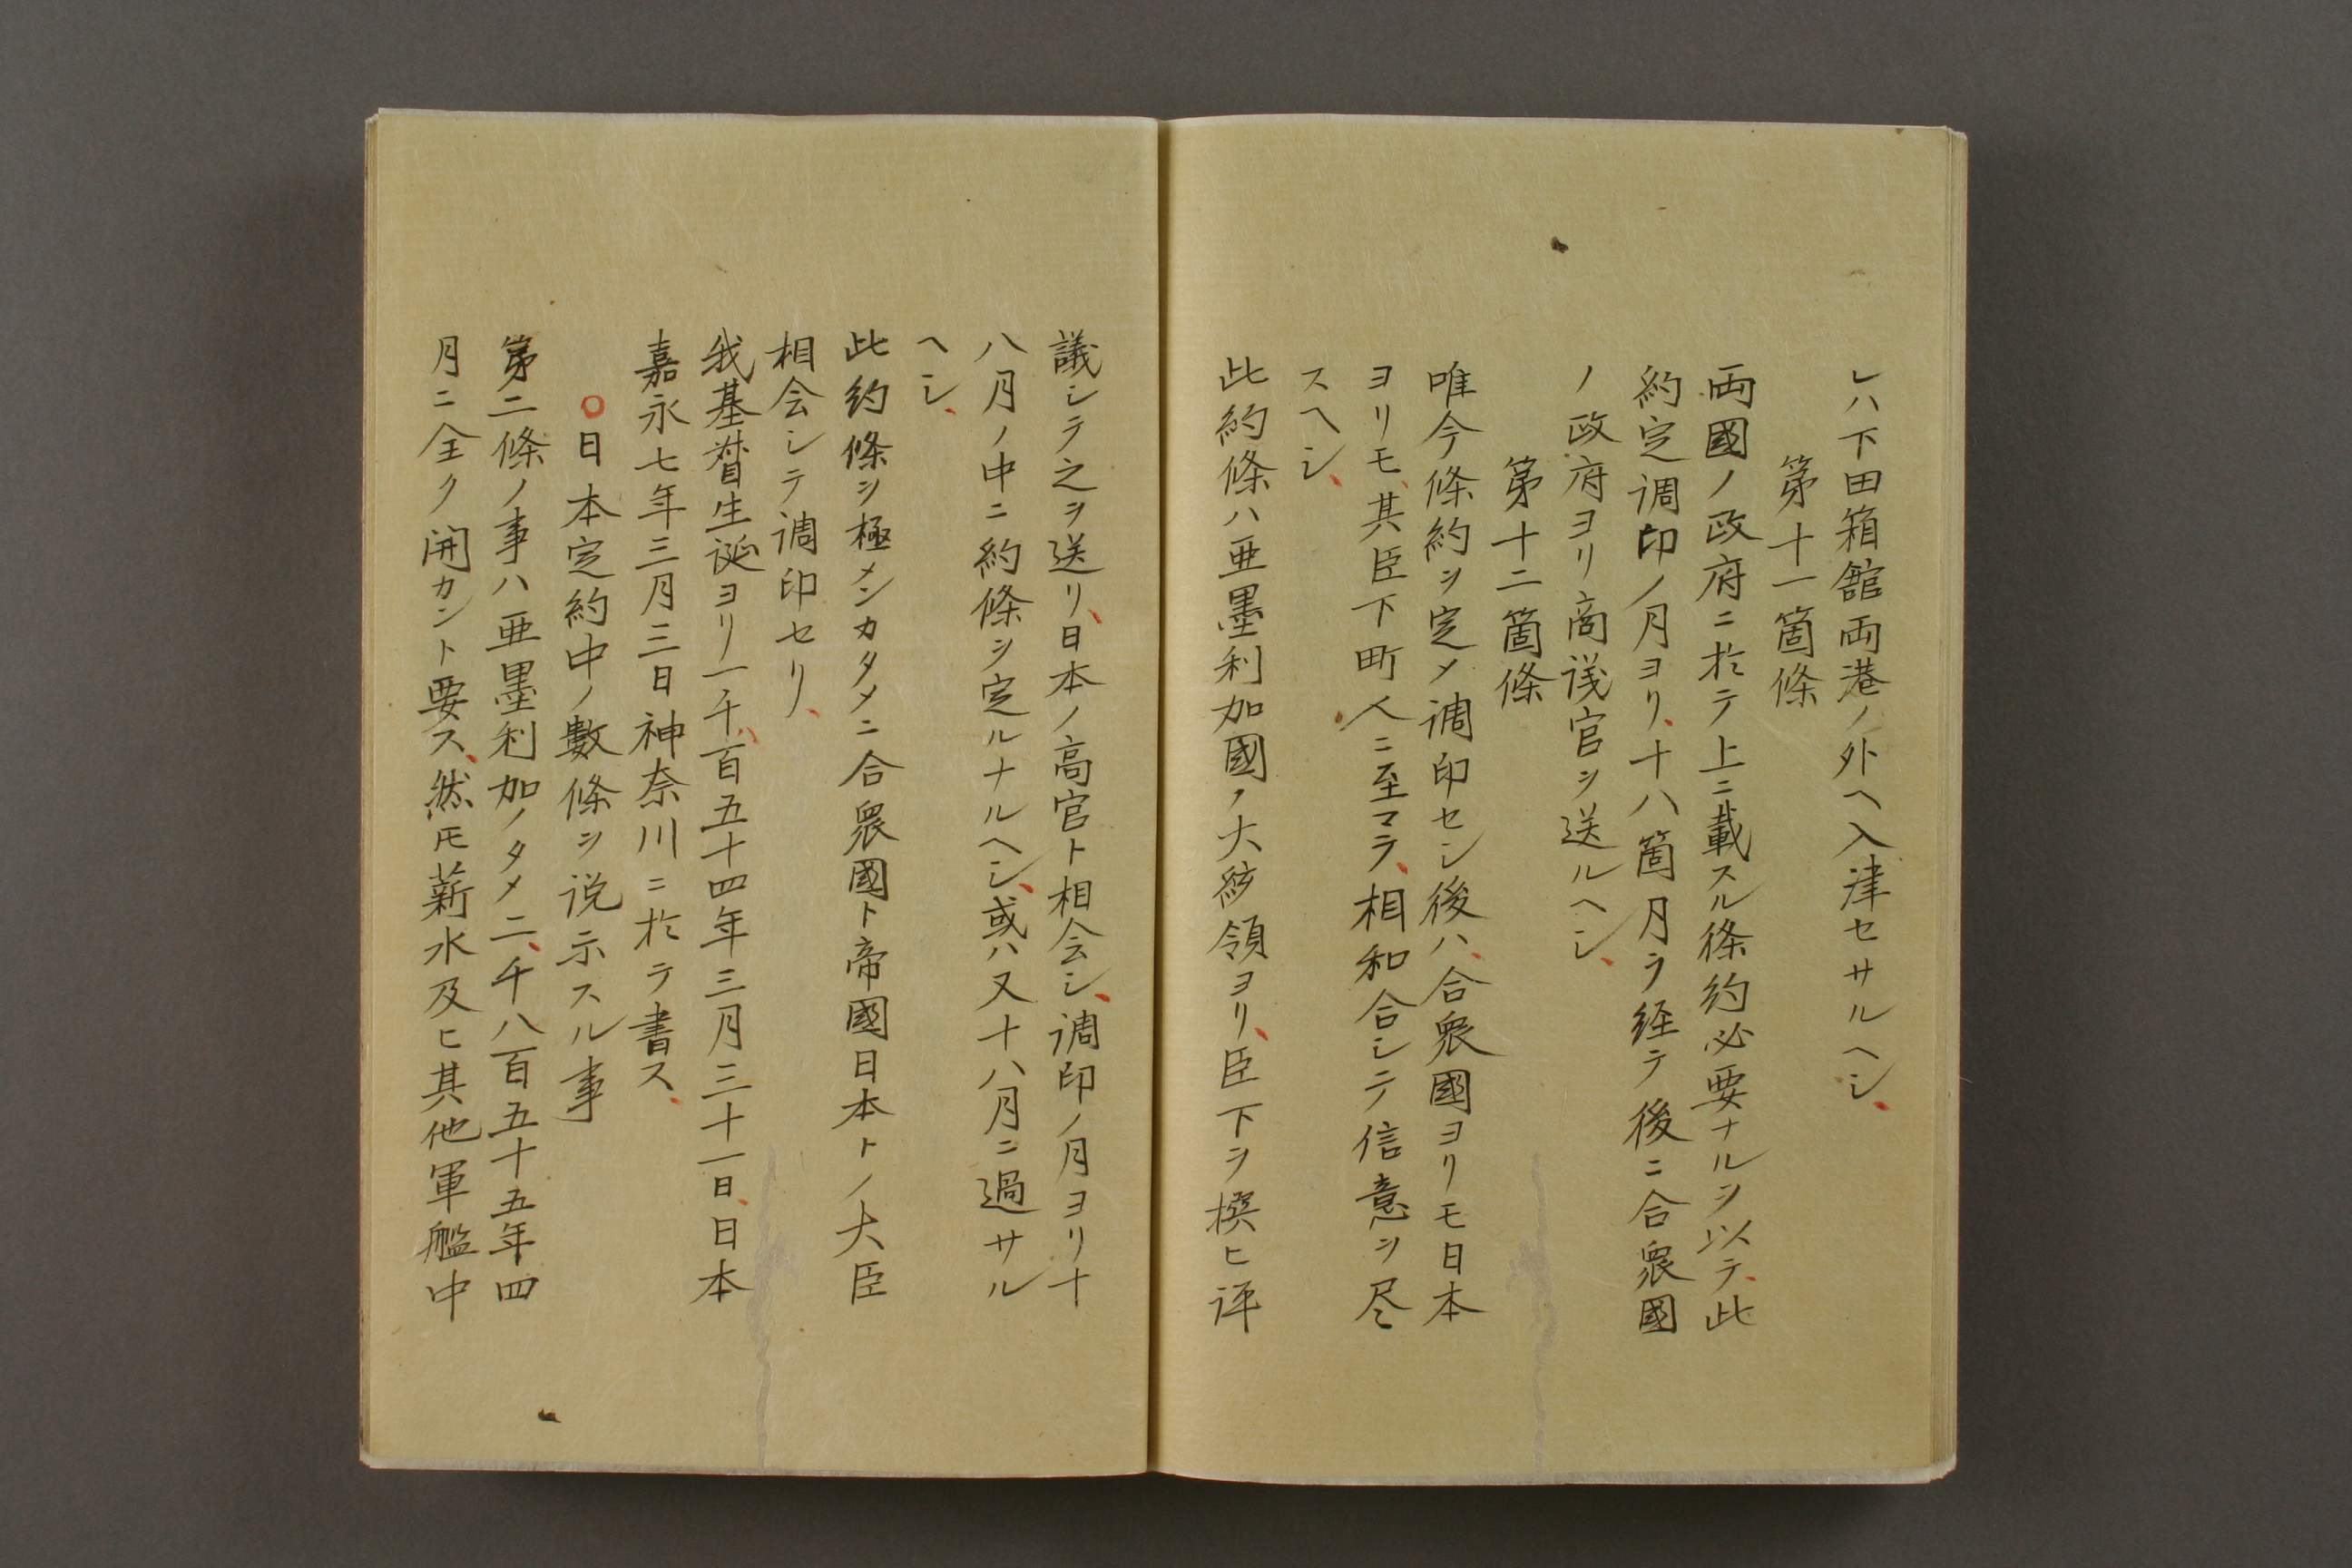 レハ下田箱舘両港ノ外ヘ入津セサルヘシ、
第十一箇條
両國ノ政府ニ於テ上ニ載スル條約必要ナルヲ以テ、此
約定调印ノ月ヨリ、十八箇月ヲ経テ後ニ合衆國
ノ政府ヨリ商議官ヲ送ルヘシ、
第十二箇條
唯今條約ヲ定メ调印セシ後ハ、合衆國ヨリモ日本
ヨリモ、其臣下町人ニ至マテ、相和合シテ信意ヲ尽
スヘシ、
此約條ハ亜墨利加國ノ大統領ヨリ、臣下ヲ撰ヒ评
議シテ之ヲ送リ、日本ノ高官ト相会シ、调印ノ月ヨリ十
八月ノ中ニ約條ヲ定ルナルヘシ、或ハ又十八月ニ過サル
ヘシ、
此約條ヲ極メンカタメニ合衆國ト帝國日本トノ大臣
相会シテ调印セリ、
我基督生誕ヨリ一千八百五十四年三月三十一日、日本
嘉永七年三月三日神奈川ニ於テ書ス、
○日本定約中ノ數條ヲ说示スル事
第二條ノ事ハ亜墨利加ノタメニ、千八百五十五年四
月ニ全ク開カント要ス、然モ薪水及ヒ其他軍艦中